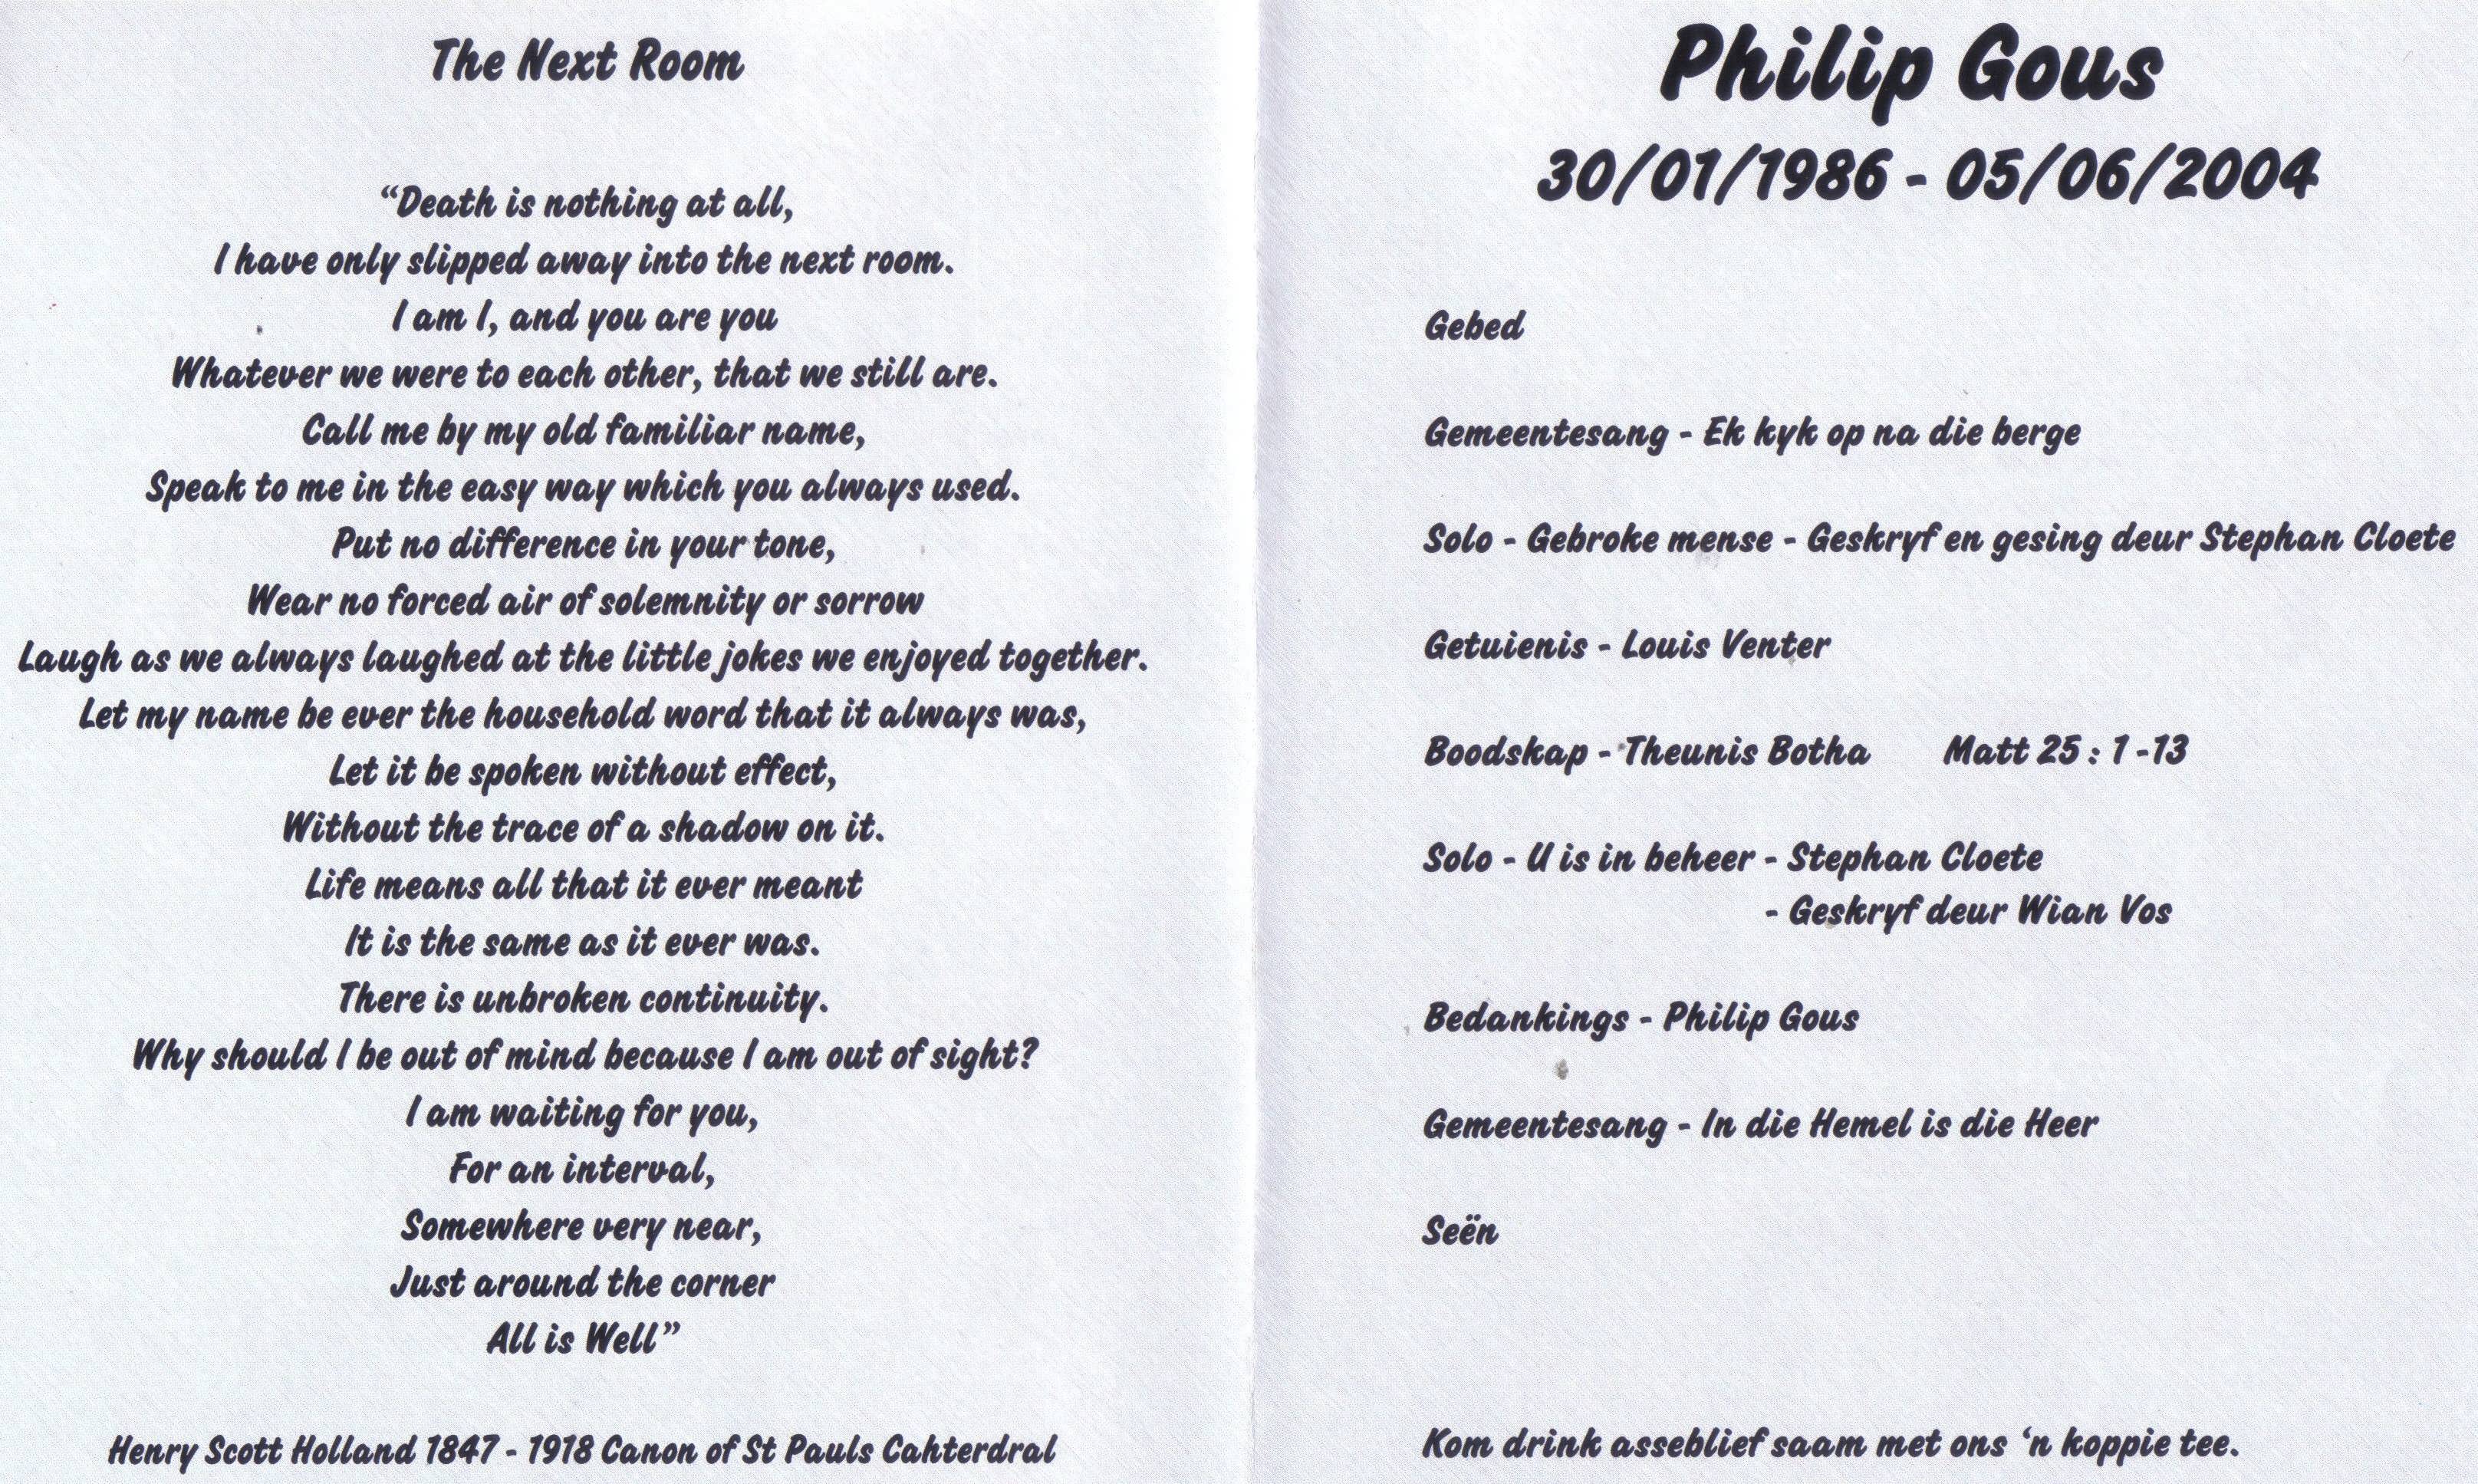 The Next Room
“Death is nothing at all,
I have only slipped away into the next room.
I am I, and you are you
Whatever we were to each other, that we still are.
Call me by my old familiar name,
Speak to me in the easy way which you always used.
Put no difference in your tone,
Wear no forced air of solemnity or sorrow
Laugh as we always laughed at the little jokes we enjoyed together.
Let my name be ever the household word that it always was,
Let it be spoken without effect,
Without the trace of a shadow on it.
Life means all that it ever meant
It is the same as it ever was.
There is unbroken continuity.
Why should I be out of mind because I am out of sight?
I am waiting for you,
For an interval,
Somewhere very near,
Just around the corner
All is Well”
Henry Scott Holland 1847 - 1918 Canon of St Pauls Cahterdral
Philip Gous
30/01/1986 - 05/06/2004
Gebed
Gemeentesang - Ek kyk op na die berge
Solo - Gebroke mense - Geskryf en gesing deur Stephan Cloete
Getuienis - Louis Venter
Boodskap - Theunis Botha Matt 25 : 1 -13
Solo - U is in beheer - Stephan Cloete
- Geskryf deur Wian Vos
Bedankings - Philip Gous
Gemeentesang - In die Hemel is die Heer
Seën
Kom drink asseblief saam met ons ‘n koppie tee.